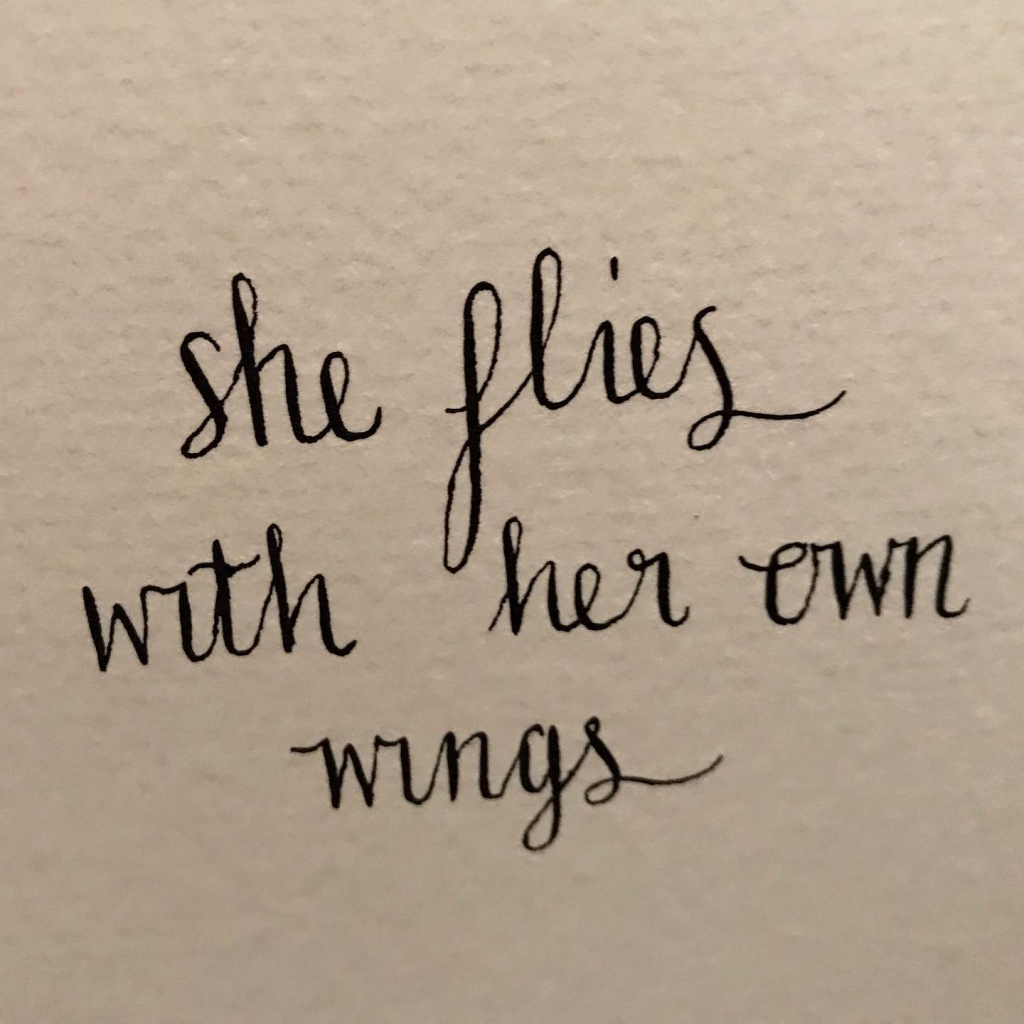 she flies
with her own
wings